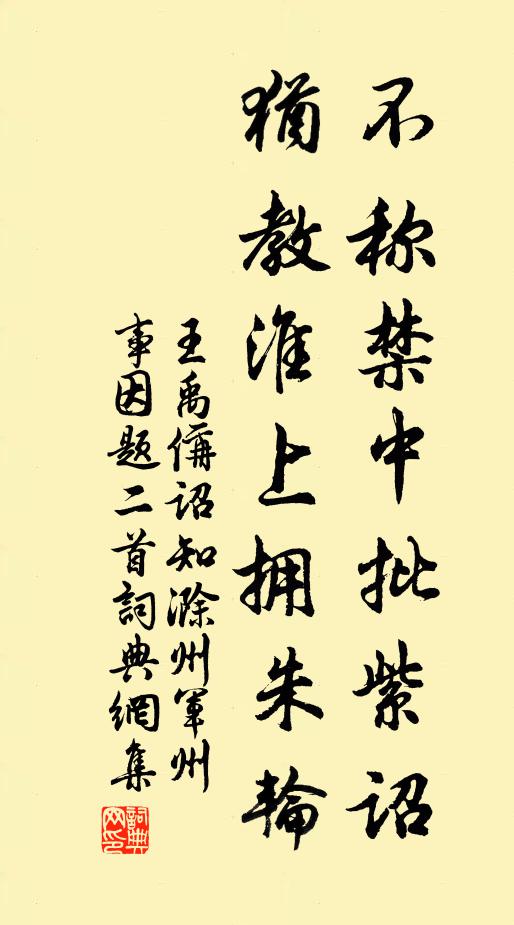 不称禁中批紫诏
犹教淮上拥朱轮
王禹偁诏知滁州军州
事因题二首詞典網集
詞典